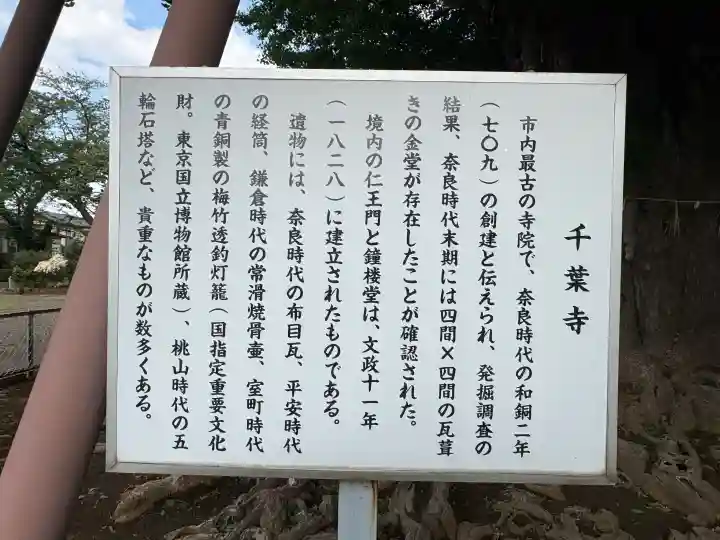 千葉寺
市内最古の寺院で、奈良時代の和銅二年
(七〇九)の創建と伝えられ、発掘調査の
結果、奈良時代末期には四間×四間の瓦葺
きの金堂が存在したことが確認された。
境内の仁王門と鐘楼堂は、文政十一年
(一八二八)に建立されたものである。
遺物には、奈良時代の布目瓦、平安時代
の経筒、鎌倉時代の常滑焼骨壷、室町時代
の青銅製の梅竹透釣灯籠(国指定重要文化
財。東京国立博物館所蔵)、桃山時代の五
輪石塔など、貴重なものが数多くある。